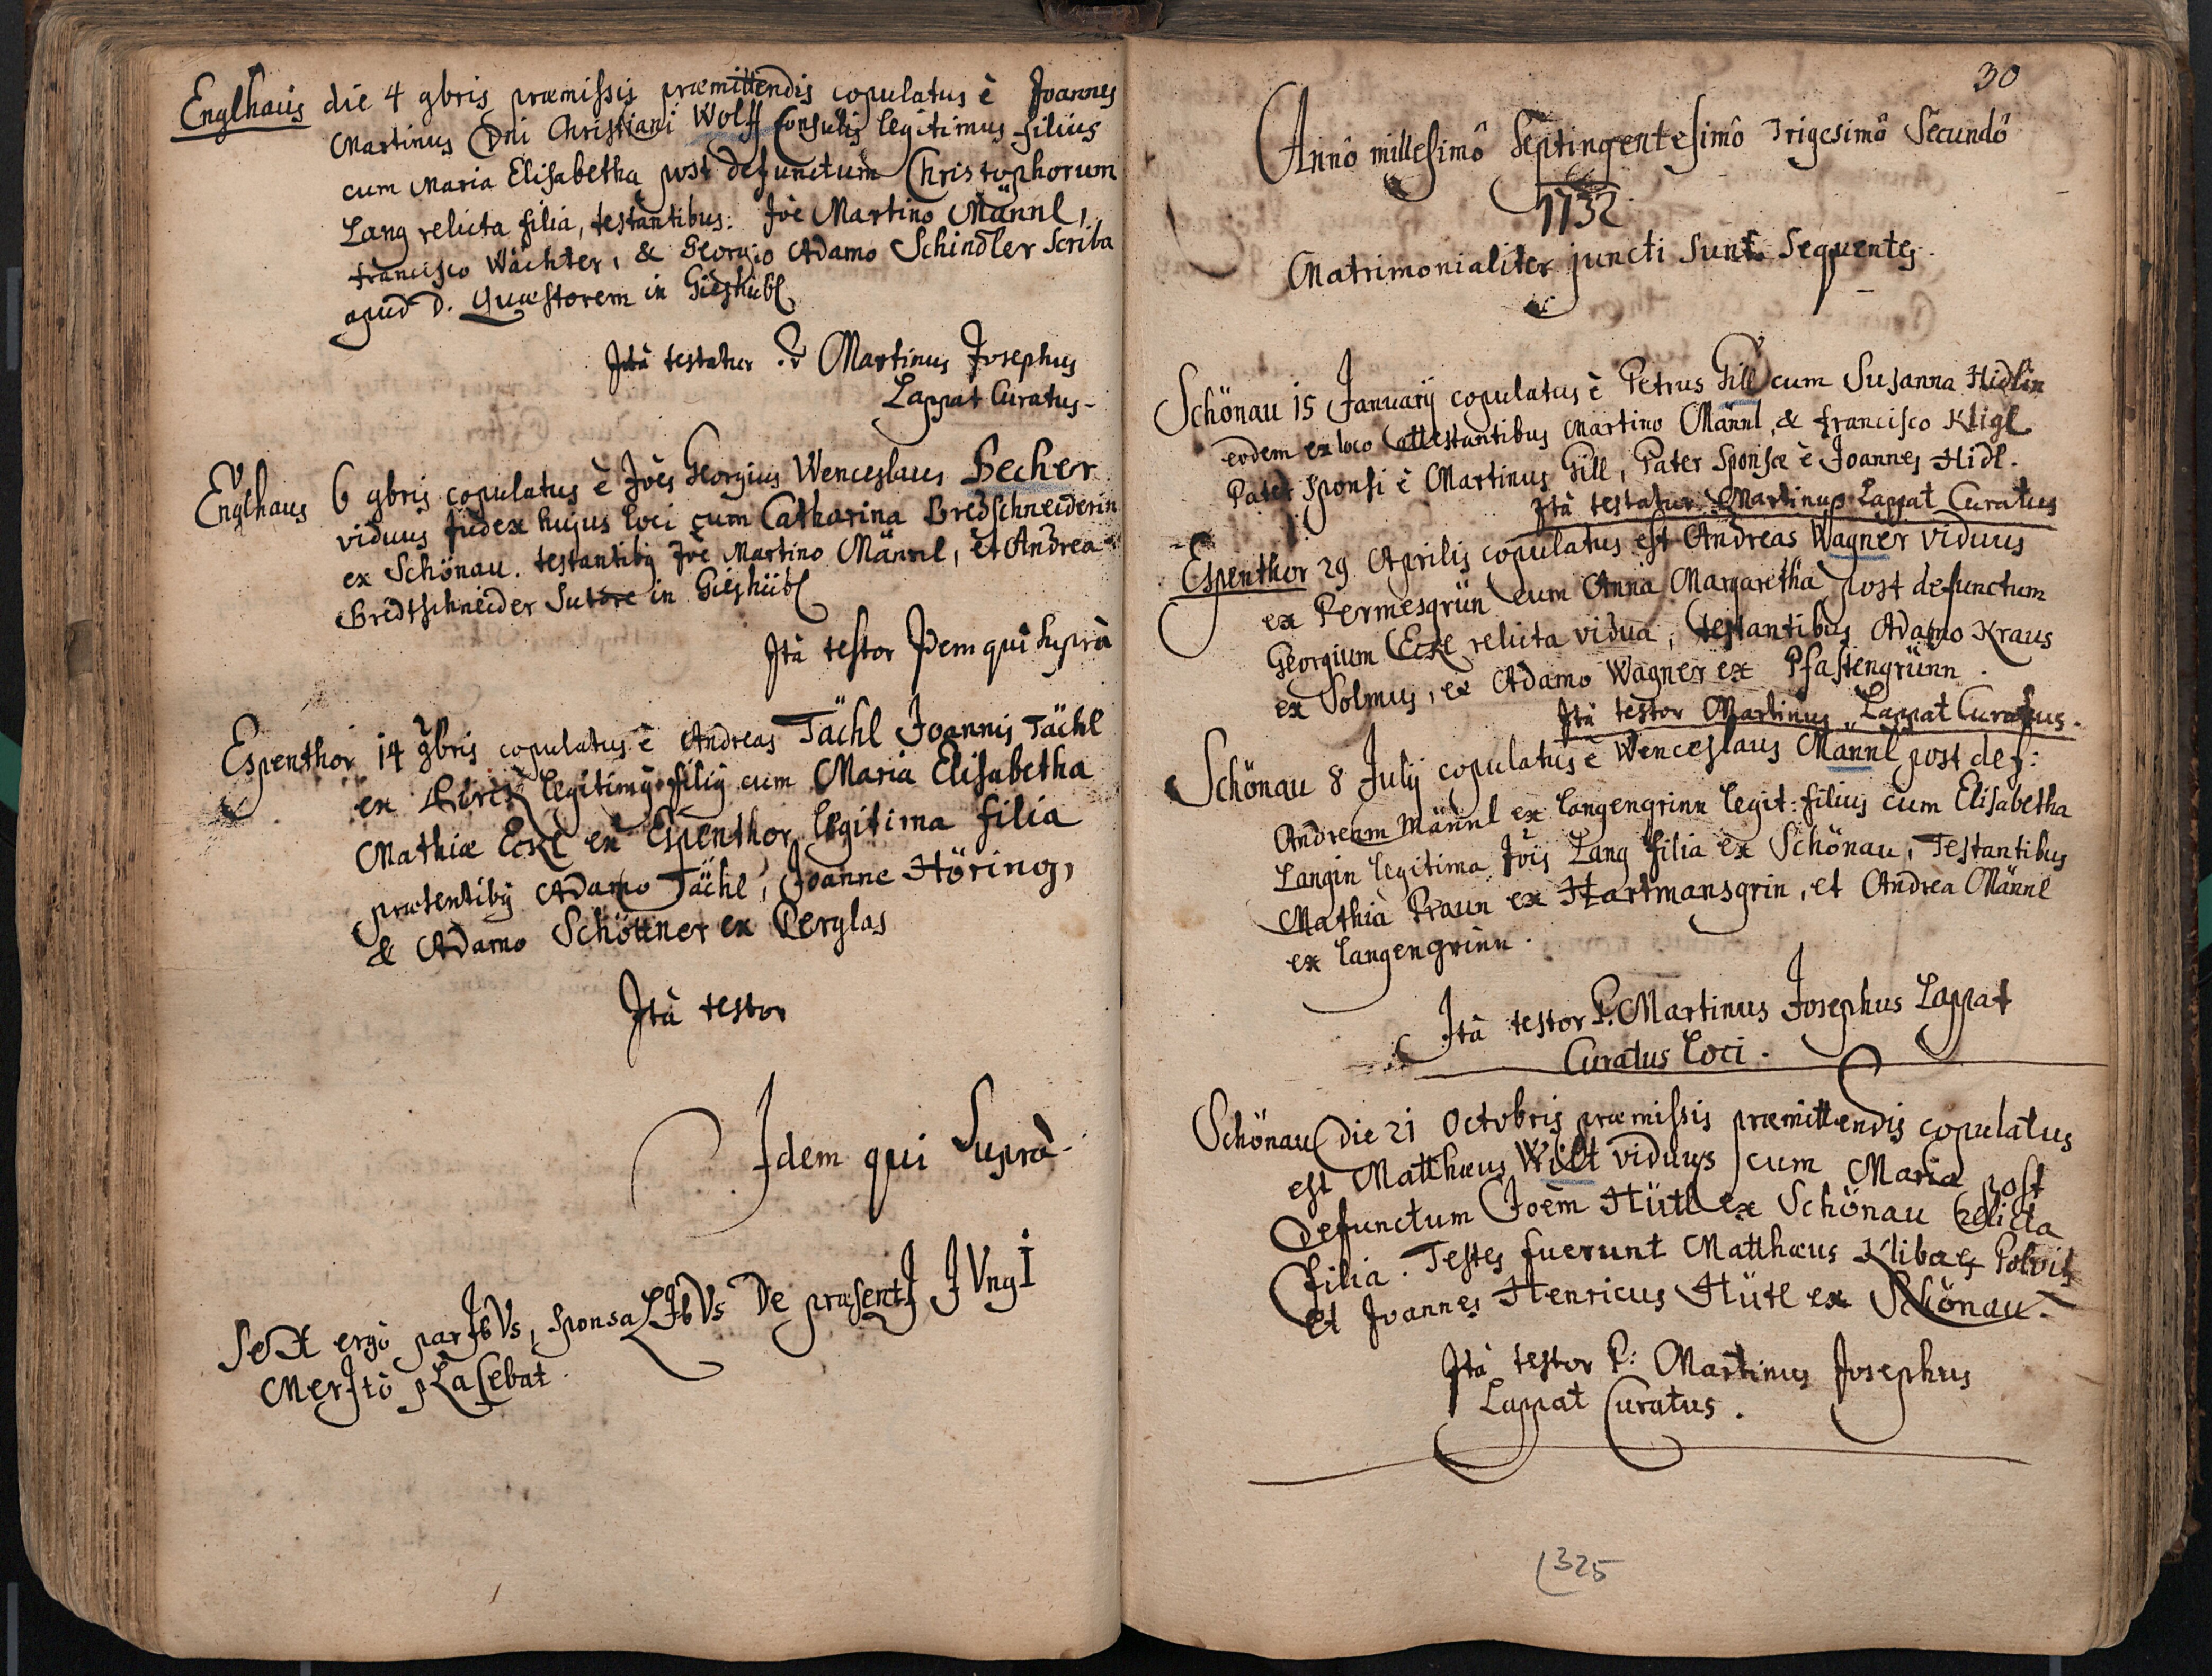 Englhaus die 4 9bris præmissis præmittendis copulatus è Joannes
Martinus Dni Christiani Wolff Consulis legitimus filius
cum Maria Elisabetha post defunctum Christophorum
Lang relicta filia, testantibus: Joe Martino Männl,
Francisco Wächter, & Georgio Adamo Schindler Scriba
apud D. Quæstorem in Gieshübl
Ità testatur P. Martinus Josephus
Lappat Curatus-
Englhaus 6 9bris copulatus è Joes Georgius Wenceslaus Becher
viduus Judex hujus loci cum Catharina Bredschneiderin
ex Schönau. testantibus Joe Martino Männl, et Andrea
Bredtschneider Sutore in Gieshübl
Ità testor Idem qui suprà
Espenthor 14 9bris copulatus è Andreas Tächl Joannis Tächl
ex legitimus filius cum Maria Elisabetha
Mathiæ Eckl ex Espenthor legitima filia
præsentibus Adamo Tächl, Joanne Höring,
& Adamo Schöttner ex Perglas
Ità testor
Idem qui Suprà-
SeX ergò parIbVs, sponsaLIbVs De præsentI IVngI
MerItò pLaCebat.
30
Annô millesimô Septingentesimô Trigesimô Secundô
1732
Matrimonialiter juncti sunt Sequentes.
Schönau 15 Januarij copulatus è Petrus Gill cum Susanna Hidlin
eodem ex loco attestantibus Martino Männl, & Francisco Kligl
Pater sponsi è Martinus Gill, Pater Sponsæ è Joannes Hidl.
Ità testatur Martinus Lappat Curatus
Espenthor 29 Aprilis copulatus est Andreas Wagner viduus
ex Permesgrün cum Anna Margaretha post defunctum
Georgium Eckl relicta vidua, testantibus Adamo Kraus
ex Solmus, et Adamo Wagner ex Pfastengrünn.
Ità testor Martinus Lappat Curatus.
Schönau 8 Julij copulatus è Wenceslaus Männl post def:
Andream Männl ex Langengrinn legit: filius cum Elisabetha
Langin legitima Jois Lang filia ex Schönau, Testantibus
Mathia Praun ex Hartmansgrin, et Andrea Männl
ex Langengrinn.
Ità testor P. Martinus Josephus Lappat
Curatus Loci.
Schönau die 21 Octobris præmissis præmittendis copulatus
est Matthæus Wilt viduus cum Maria post
defunctum Joem Hütl ex Schönau relicta
filia. Testes fuerunt Matthæus
et Joannes Henricus Hütl ex Schönau.
Ità testor P: Martinus Josephus
Lappat Curatus.
325